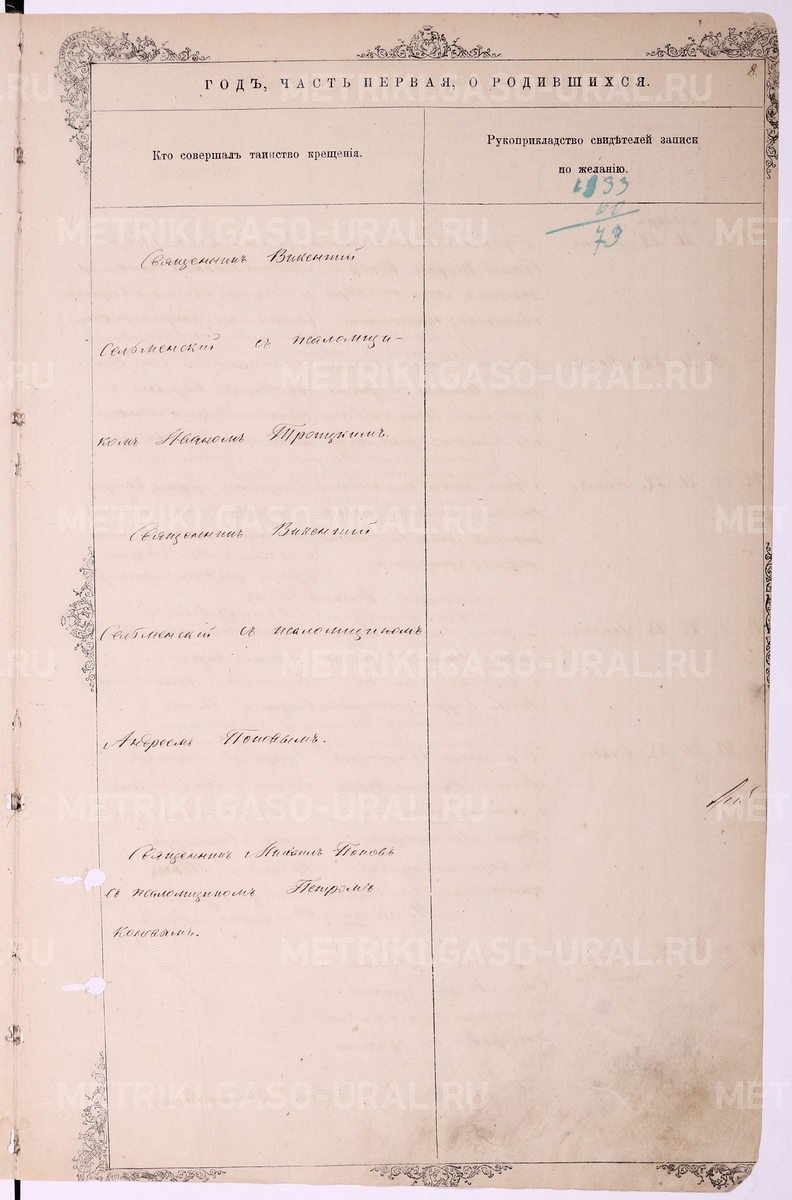 8.
ГОДЪ, ЧАСТЬ ПЕРВАЯ, О РОДИВШИХСЯ.
Кто совершалъ таинство крещенія.
Рукоприкладство свидѣтелей записи
по желанію.
1933
60
73
Священникъ Викентій
Сельменскій съ псаломщи-
комъ Иваномъ Троицкимъ.
Священникъ Викентій
Сельменскій съ псаломщикомъ
Андреемъ Поповымъ.
Священникъ Михаилъ Поповъ
съ псаломщикомъ Петромъ
METRIKI.GASO-URAL.RU